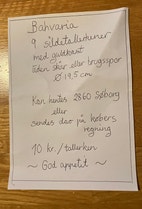 Bahvaria
9 sildetallerkener
med guldkant
uden skår eller brugsspor
Ø 19,5 cm
Kan hentes 2860 Søborg
eller
sendes dao på købers
regning
90 kr. / tallerken
~ God appetit ~